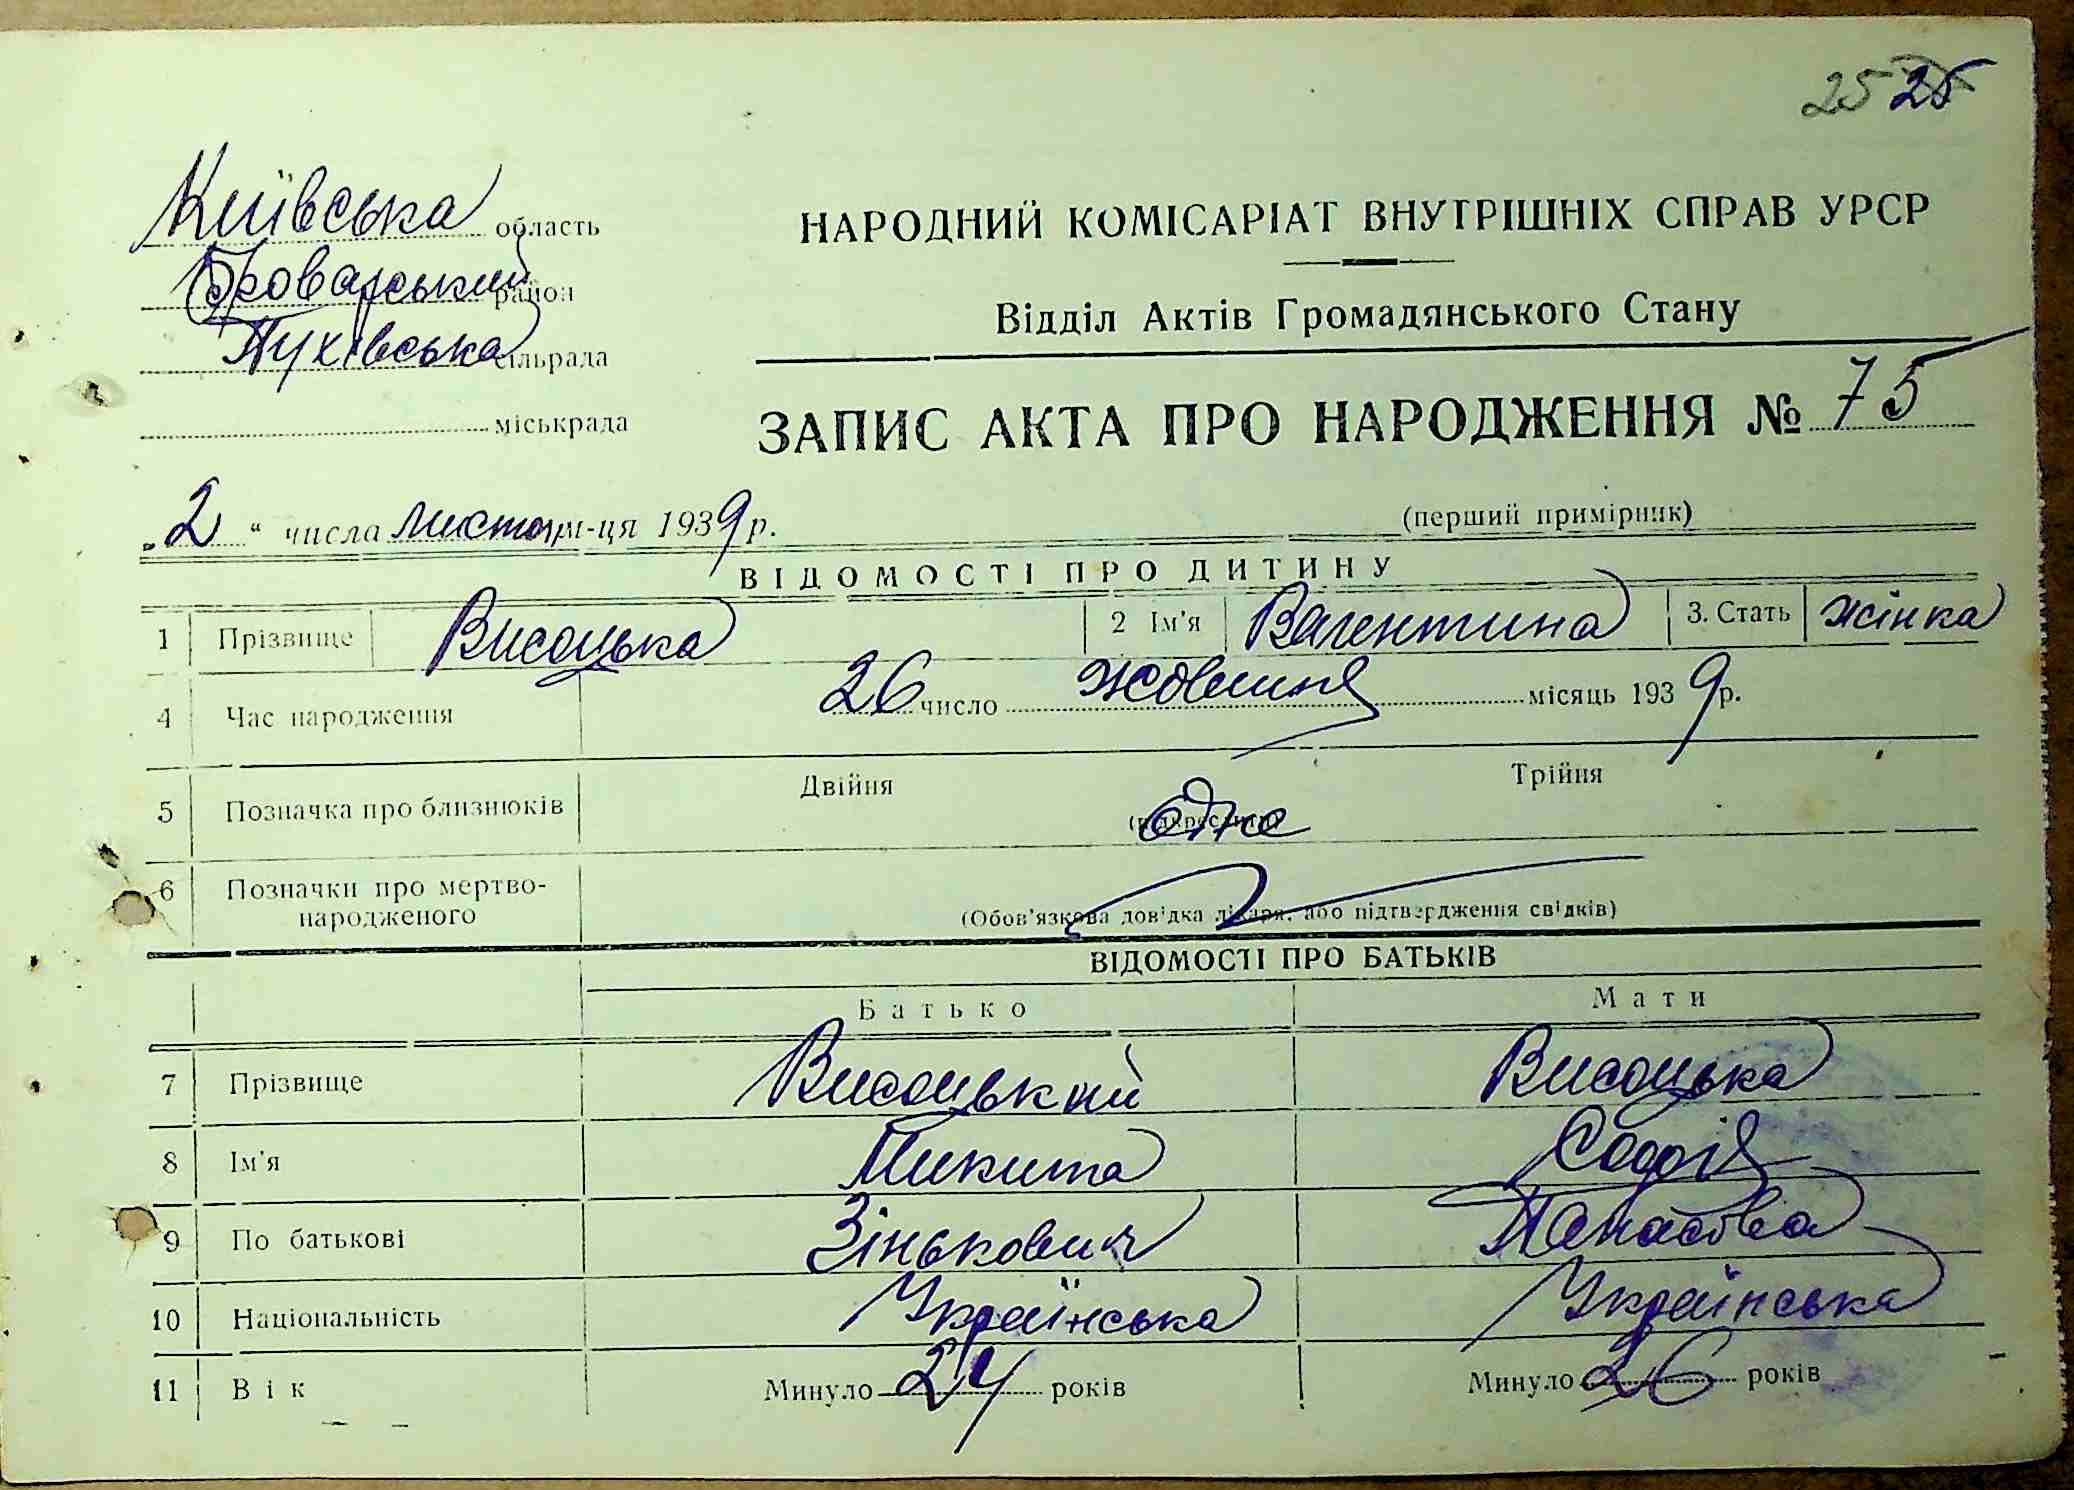 25 25
Київська область
Броварський район
Пухівська сільрада
міськрада
НАРОДНИЙ КОМІСАРІАТ ВНУТРІШНІХ СПРАВ УРСР
Відділ Актів Громадянського Стану
ЗАПИС АКТА ПРО НАРОДЖЕННЯ № 75
„2“ числа листоп м-ця 1939 р.
(перший примірник)
ВІДОМОСТІ ПРО ДИТИНУ
1 Прізвище Висоцька 2 Ім'я Валентина 3. Стать жінка
4 Час народження 26 число жовтня місяць 1939 р.
5 Позначка про близнюків Двійня Трійня
одно
(підкреслити)
6 Позначки про мертво-
народженого (Обов'язкова довідка лікаря, або підтвердження свідків)
ВІДОМОСТІ ПРО БАТЬКІВ
Батько Мати
7 Прізвище Висоцький Висоцька
8 Ім'я Микита Софія
9 По батькові Зінькович Панасівна
10 Національність Українська Українська
11 Вік Минуло 24 років Минуло 26 років